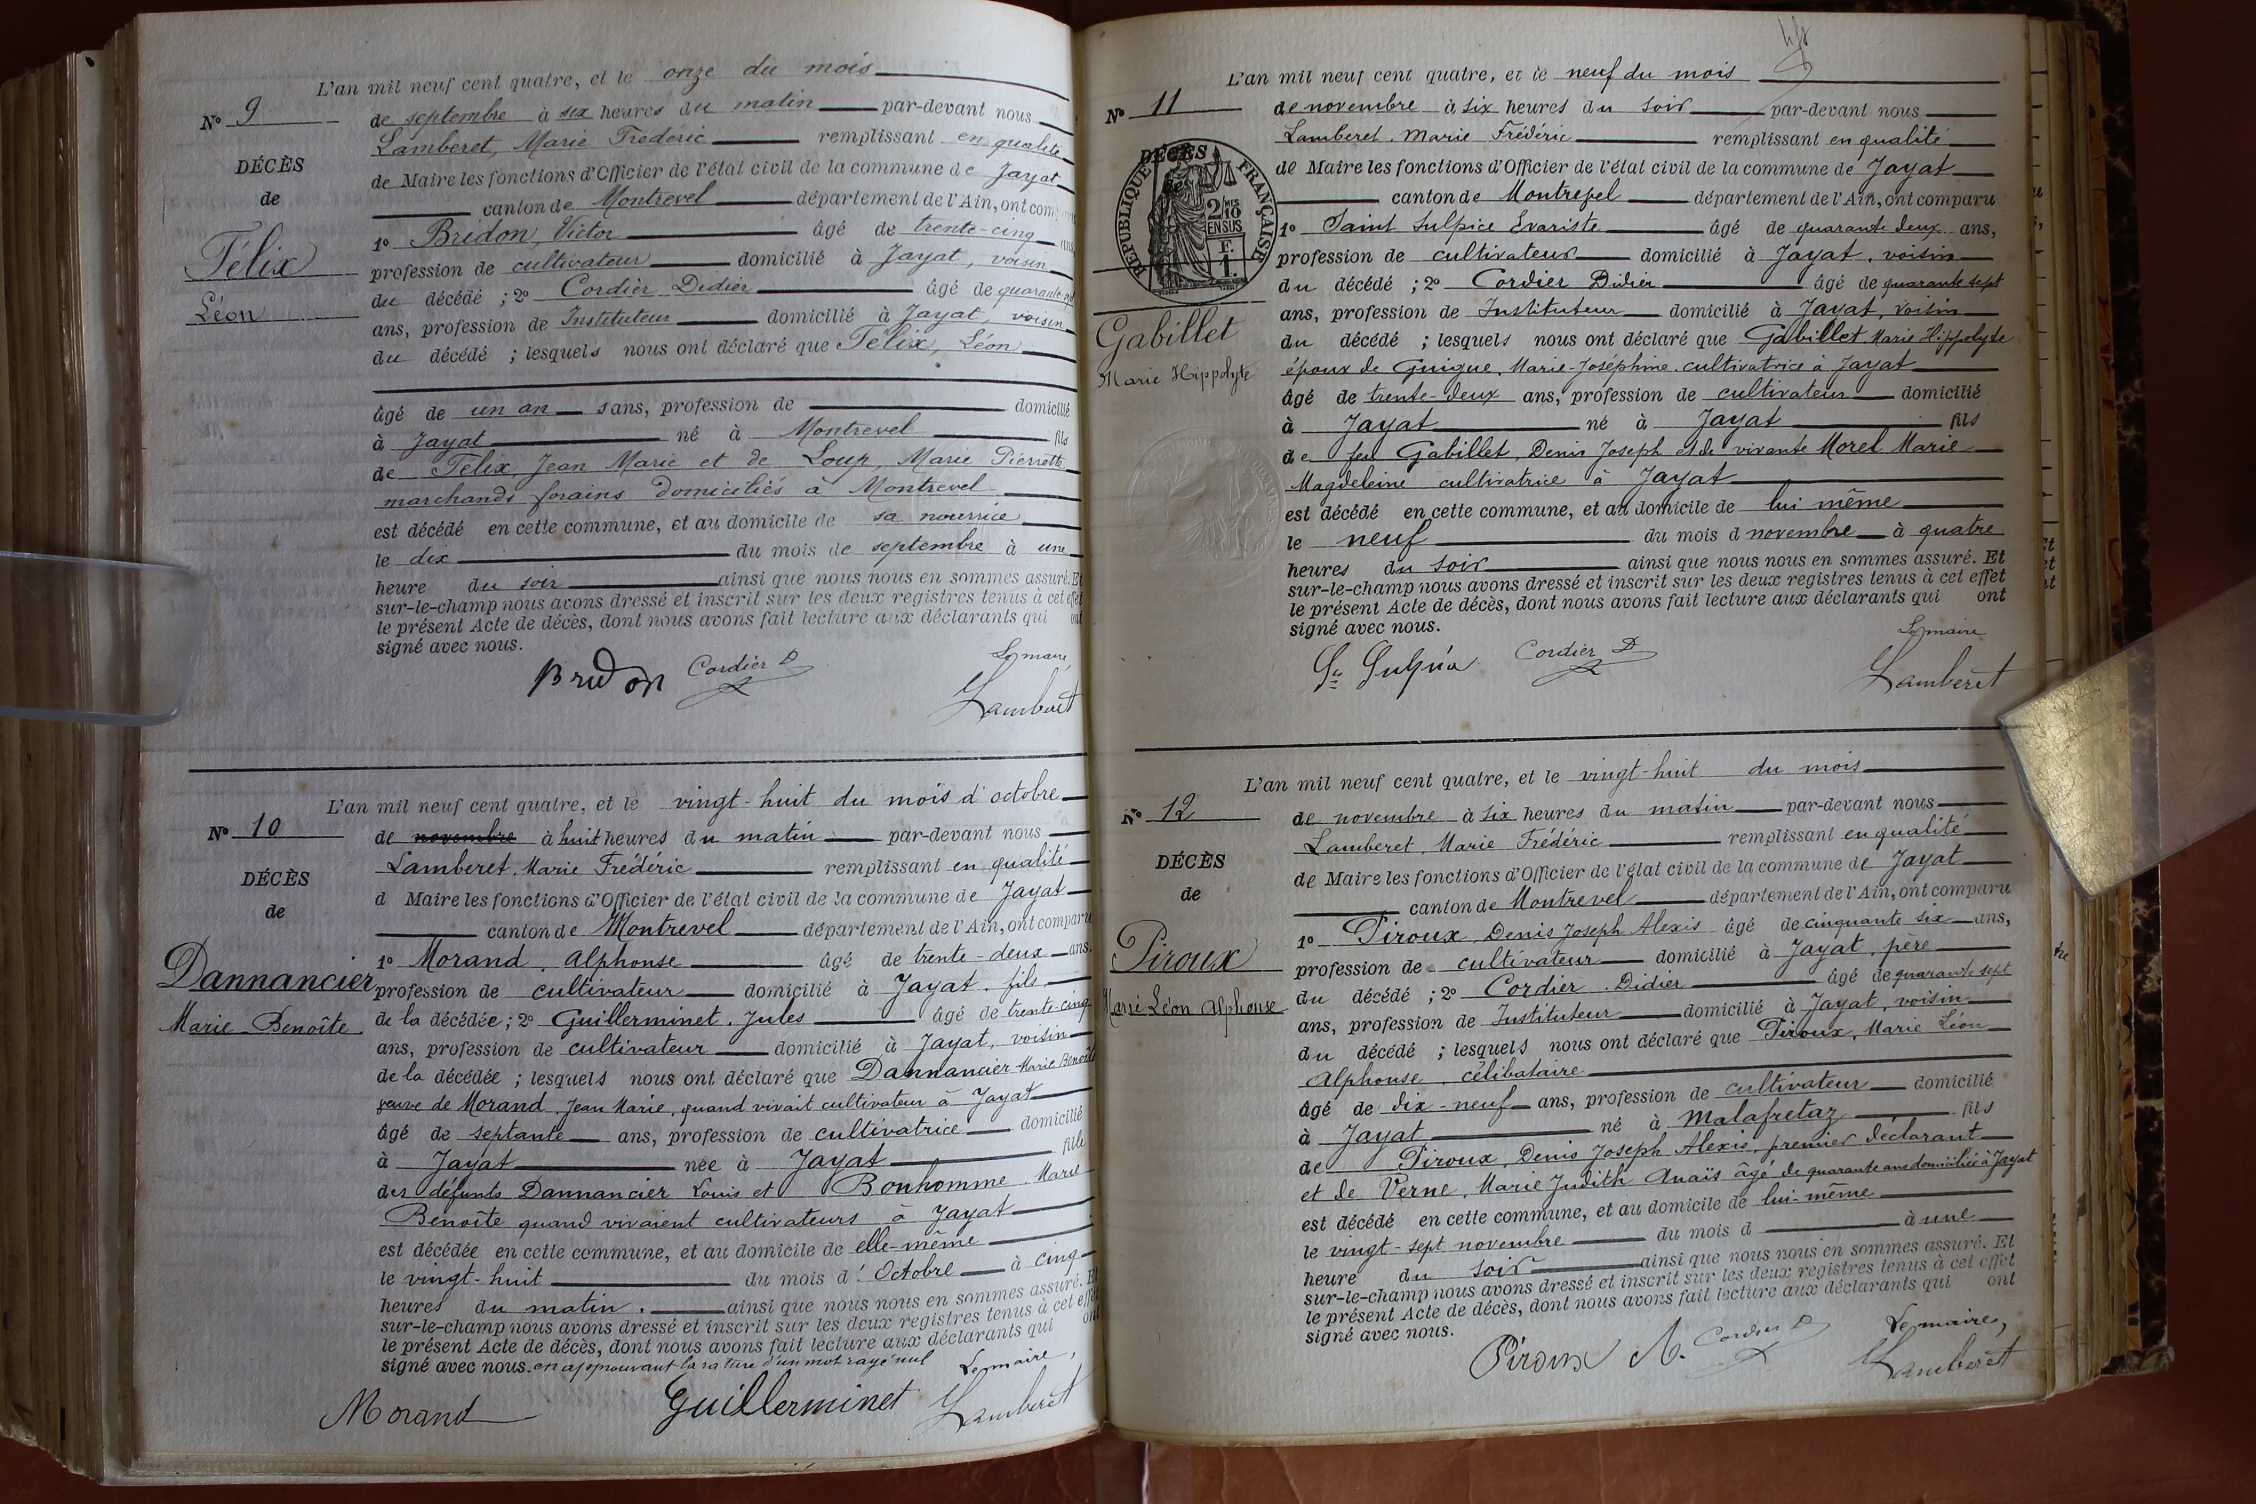 L'an mil neuf cent quatre, et le onze du mois
N° 9
de septembre à six heures du matin par-devant nous
Lamberet, Marie Frédéric remplissant en qualité
DÉCÈS
de Maire les fonctions d'Officier de l'état civil de la commune de Jayat
de
canton de Montrevel département de l'Ain, ont comparu
1° Bridon, Victor âgé de trente-cinq ans,
Félix
profession de cultivateur domicilié à Jayat, voisin
du décédé ; 2° Cordier Didier âgé de quarante-sept
Léon
ans, profession de Instituteur domicilié à Jayat, voisin
du décédé ; lesquels nous ont déclaré que Félix, Léon
âgé de un an sans, profession de domicilié
à Jayat né à Montrevel fils
de Félix Jean Marie et de Loup, Marie Pierrette
marchands forains domiciliés à Montrevel
est décédé en cette commune, et au domicile de sa nourrice
le dix du mois de septembre à une
heure du soir ainsi que nous nous en sommes assuré. Et
sur-le-champ nous avons dressé et inscrit sur les deux registres tenus à cet effet
le présent Acte de décès, dont nous avons fait lecture aux déclarants qui ont
signé avec nous.
Bridon Cordier D Le maire,
Lamberet
L'an mil neuf cent quatre, et le vingt-huit du mois d'octobre
N° 10
de novembre à huit heures du matin par-devant nous
Lamberet, Marie Frédéric remplissant en qualité
DÉCÈS
d Maire les fonctions d'Officier de l'état civil de la commune de Jayat
de
canton de Montrevel département de l'Ain, ont comparu
1° Morand, Alphonse âgé de trente-deux ans.
Dannancier
profession de cultivateur domicilié à Jayat, fils
Marie Benoîte
de la décédée ; 2° Guillerminet, Jules âgé de trente-cinq
ans, profession de cultivateur domicilié à Jayat, voisin
de la décédée ; lesquels nous ont déclaré que Dannancier Marie Benoîte
veuve de Morand, Jean Marie, quand vivait cultivateur à Jayat
âgé de septante ans, profession de cultivatrice domicilié
à Jayat née à Jayat fille
des défunts Dannancier Louis et Bonhomme Marie
Benoîte quand vivaient cultivateurs à Jayat
est décédée en cette commune, et au domicile de elle-même
le vingt-huit du mois d'Octobre à cinq
heures du matin. ainsi que nous nous en sommes assuré. Et
sur-le-champ nous avons dressé et inscrit sur les deux registres tenus à cet effet
le présent Acte de décès, dont nous avons fait lecture aux déclarants qui ont
signé avec nous. en approuvant la rature d'un mot rayé nul Le maire,
Morand Guillerminet Lamberet
L'an mil neuf cent quatre, et le neuf du mois
N° 11
de novembre à six heures du soir par-devant nous
Lamberet, Marie Frédéric remplissant en qualité
DÉCÈS
de
RÉPUBLIQUE FRANÇAISE
2/10 MES
EN SUS
1 F.
de Maire les fonctions d'Officier de l'état civil de la commune de Jayat
canton de Montrevel département de l'Ain, ont comparu
1° Saint Sulpice Evariste âgé de quarante deux ans,
profession de cultivateur domicilié à Jayat, voisin
du décédé ; 2° Cordier Didier âgé de quarante sept
ans, profession de Instituteur domicilié à Jayat, voisin
Gabillet
du décédé ; lesquels nous ont déclaré que Gabillet Marie Hippolyte
Marie Hippolyte
époux de Guigue, Marie-Joséphine, cultivatrice à Jayat
âgé de trente-deux ans, profession de cultivateur domicilié
à Jayat né à Jayat fils
de feu Gabillet, Denis Joseph et de vivante Morel Marie
Magdeleine cultivatrice à Jayat
est décédé en cette commune, et au domicile de lui même
le neuf du mois d novembre à quatre
heures du soir ainsi que nous nous en sommes assuré. Et
sur-le-champ nous avons dressé et inscrit sur les deux registres tenus à cet effet
le présent Acte de décès, dont nous avons fait lecture aux déclarants qui ont
signé avec nous.
Cordier D Le maire
Lamberet
L'an mil neuf cent quatre, et le vingt-huit du mois
N° 12
de novembre à six heures du matin par-devant nous
Lamberet, Marie Frédéric remplissant en qualité
DÉCÈS
de Maire les fonctions d'Officier de l'état civil de la commune de Jayat
de
canton de Montrevel département de l'Ain, ont comparu
1° Piroux, Denis Joseph Alexis âgé de cinquante six ans,
Piroux
profession de cultivateur domicilié à Jayat, père
Marie Léon Alphonse
du décédé ; 2° Cordier, Didier âgé de quarante sept
ans, profession de Instituteur domicilié à Jayat, voisin
du décédé ; lesquels nous ont déclaré que Piroux, Marie Léon
Alphonse, célibataire
âgé de dix-neuf ans, profession de cultivateur domicilié
à Jayat né à Malafretaz fils
de Piroux, Denis Joseph Alexis, premier déclarant
et de Verne, Marie Judith Anaïs âgé de quarante ans domiciliée à Jayat
est décédé en cette commune, et au domicile de lui-même
le vingt-sept novembre du mois d à une
heure du soir ainsi que nous nous en sommes assuré. Et
sur-le-champ nous avons dressé et inscrit sur les deux registres tenus à cet effet
le présent Acte de décès, dont nous avons fait lecture aux déclarants qui ont
signé avec nous.
Piroux A. Cordier D Le maire,
Lamberet